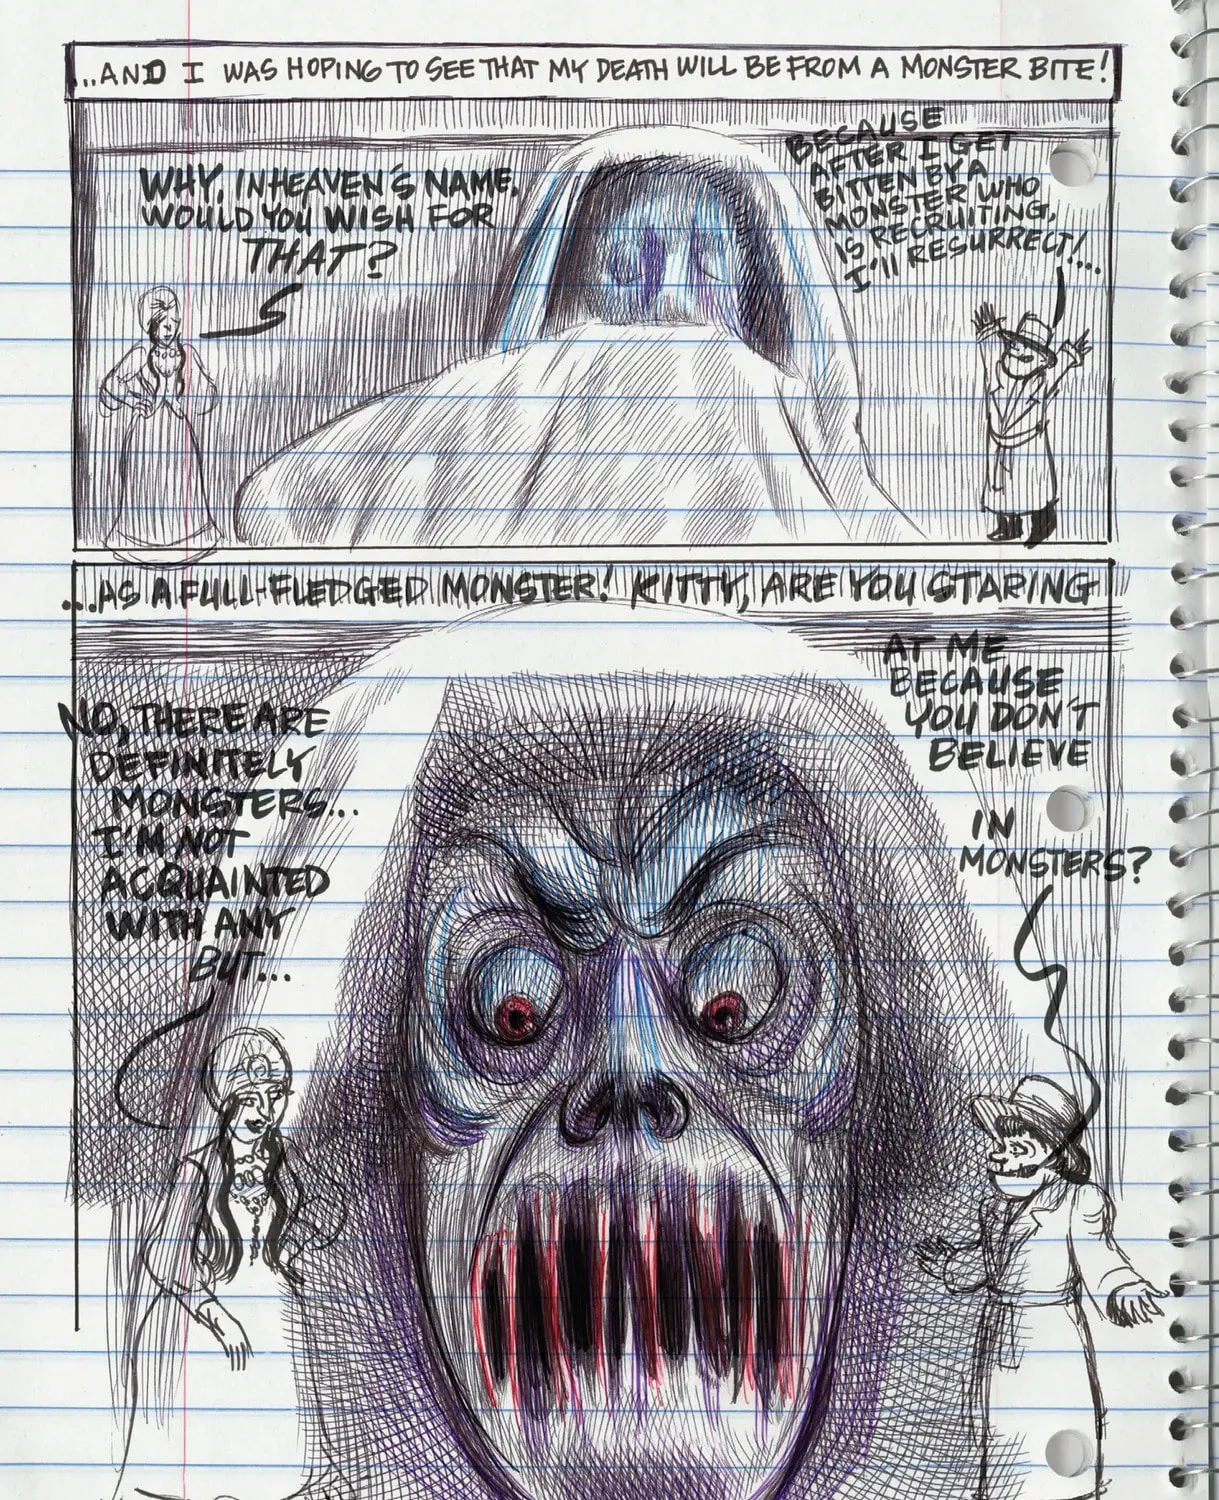 ...AND I WAS HOPING TO SEE THAT MY DEATH WILL BE FROM A MONSTER BITE!
WHY, IN HEAVEN'S NAME,
WOULD YOU WISH FOR
THAT?
BECAUSE
AFTER I GET
BITTEN BY A
MONSTER WHO
IS RECRUITING,
I'll RESURRECT!...
...AS A FULL-FLEDGED MONSTER! KITTY, ARE YOU STARING
AT ME
BECAUSE
YOU DON'T
BELIEVE
IN
MONSTERS?
NO, THERE ARE
DEFINITELY
MONSTERS...
I'M NOT
ACQUAINTED
WITH ANY
BUT...